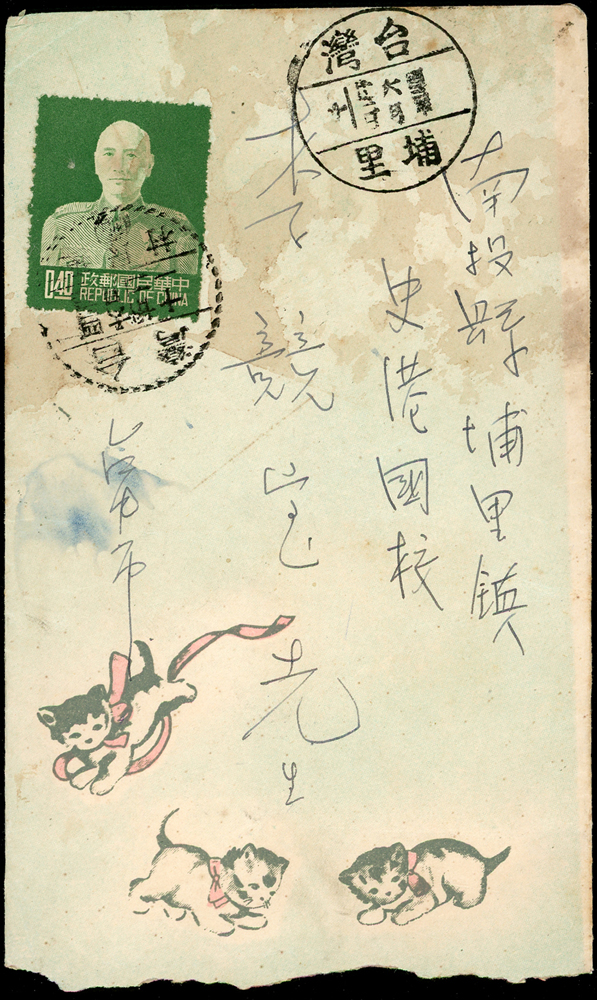 南投縣埔里鎮
史港國校
李競
先生
市
台灣
埔里
0.40
中華民國郵政
REPUBLIC OF CHINA
台
灣
村